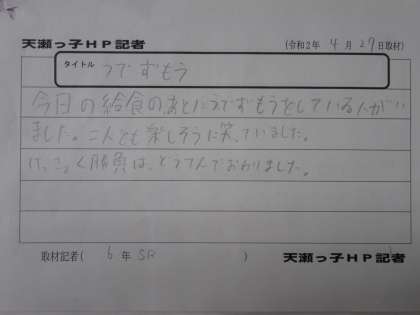 天瀬っ子HP記者
(令和2年 4月27日取材)
タイトル
うでずもう
今日の給食のあとにうでずもうをしている人がい
ました。二人とも楽しそうに笑っていました。
けっきょく勝負は、どうてんでおわりました。
取材記者( 6年 SR )
天瀬っ子HP記者